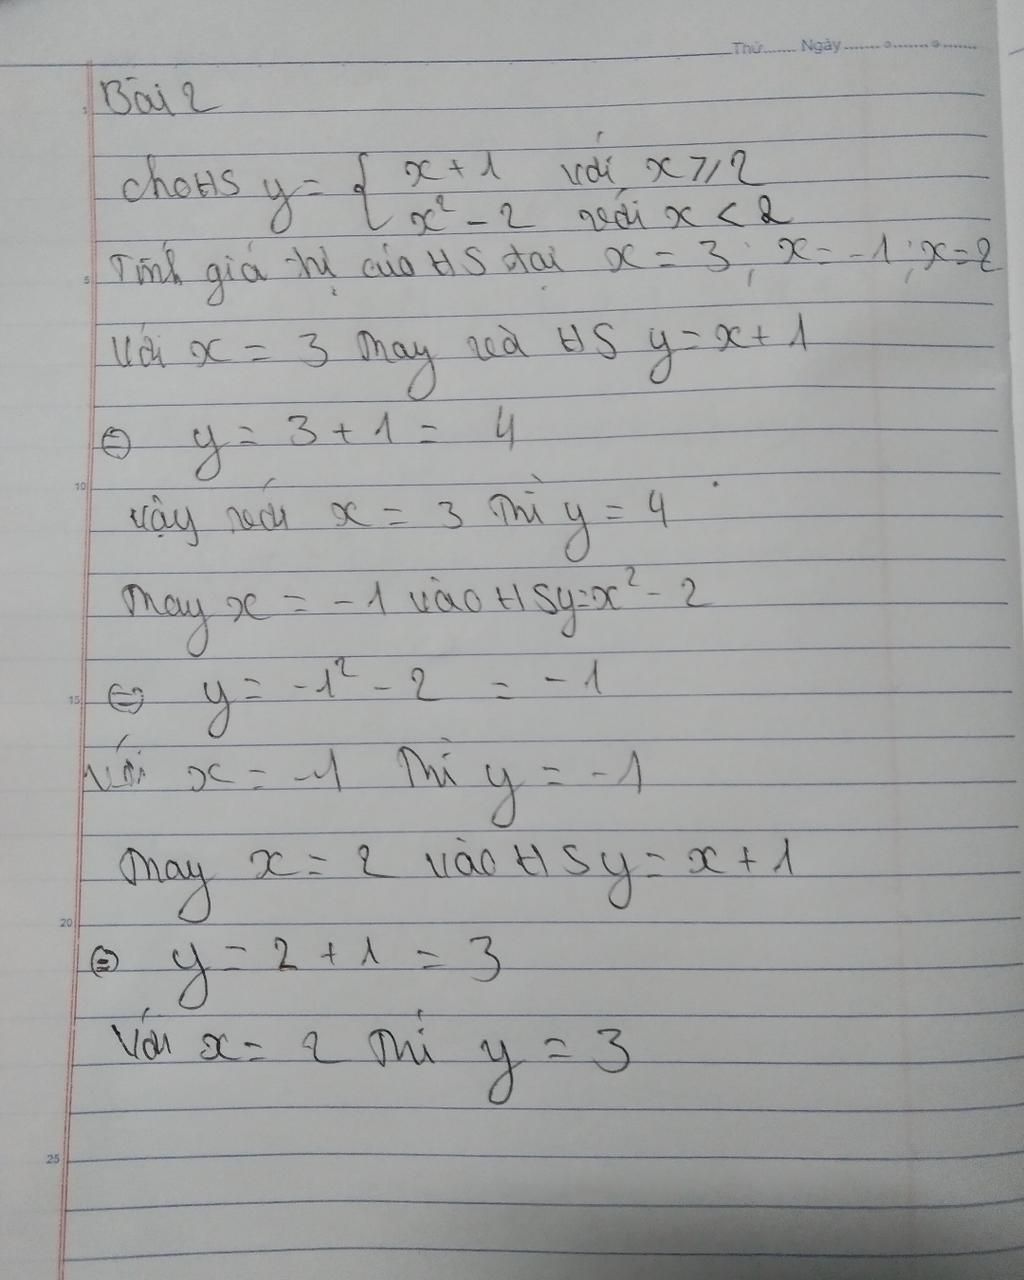 Thứ....... Ngày ........o........o........
Bài 2
Cho HS y = { x + 1 với x ⩾ 2
x² - 2 với x < 2
Tính giá trị của HS tại x = 3 ; x = -1 ; x = 2
Với x = 3 thay và HS y = x + 1
⇔ y = 3 + 1 = 4
10
Vậy với x = 3 thì y = 4
thay x = -1 vào HS y = x² - 2
⇔ y = -1² - 2 = -1
15
Với x = -1 thì y = -1
thay x = 2 vào HS y = x + 1
20
⇔ y = 2 + 1 = 3
Với x = 2 thì y = 3
25